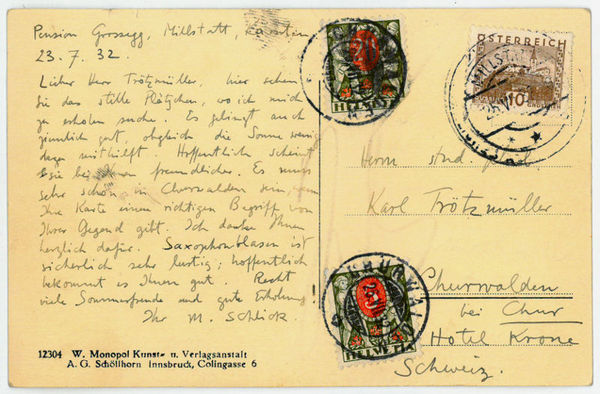 Pension Grossegg, Millstatt, Kärnten
23.7.32.
Lieber Herr Trötzmüller, hier sehen
Sie das stille Plätzchen, wo ich mich
zu erholen suche. Es gelingt auch
ziemlich gut, obgleich die Sonne wenig
dazu mithilft. Hoffentlich scheint
sie bei Ihnen freundlicher. Es muss
sehr schön in Churwalden sein, wenn
Ihre Karte einen richtigen Begriff von
Ihrer Gegend gibt. Ich danke Ihnen
herzlich dafür. Saxophonblasen ist
sicherlich sehr lustig; hoffentlich
bekommt es Ihnen gut. Recht
viele Sommerfreude und gute Erholung
Ihr M. Schlick.
12304 W. Monopol Kunst- u. Verlagsanstalt
A. G. Schöllhorn Innsbruck, Colingasse 6
HELVETIA
ÖSTERREICH
10
MILLSTATT
Herrn stud. phil.
Karl Trötzmüller
Churwalden
bei Chur
Hotel Krone
Schweiz.
CHURWALDEN